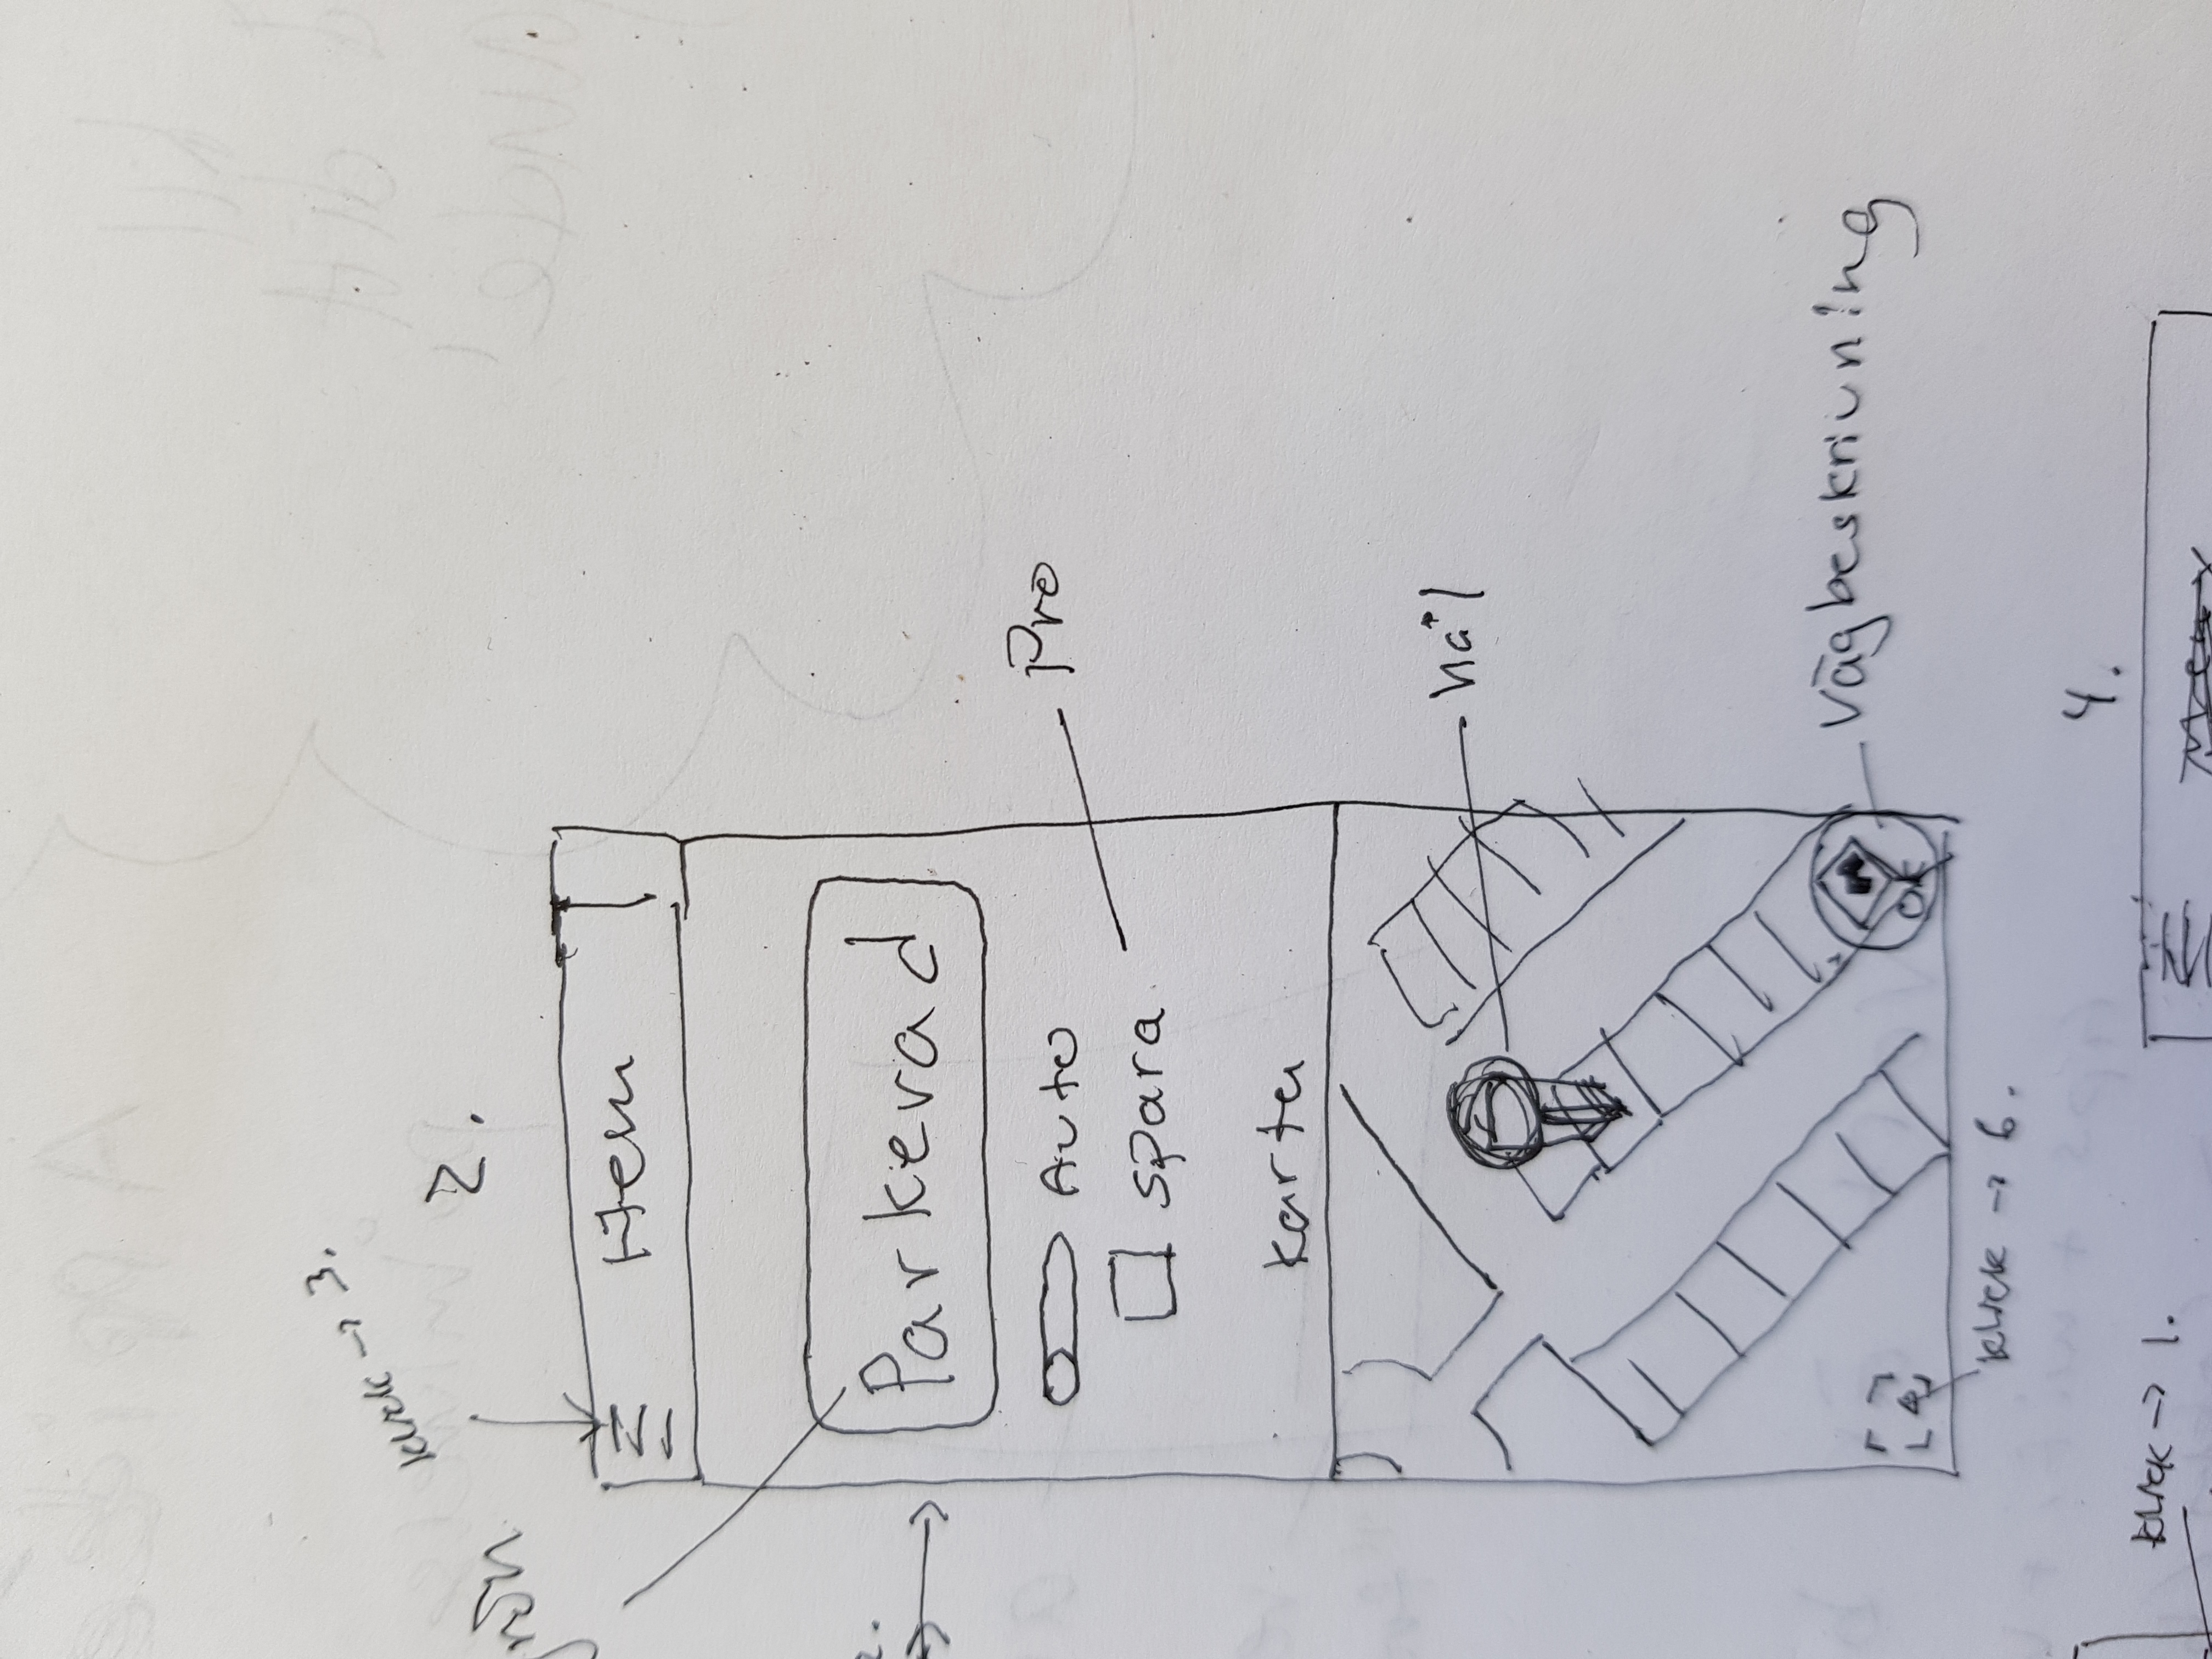 klick → 3.
2.
rön
Hem
2.
Parkerad
Auto
Pro
spara
karta
nål
Vägbeskrivning
OK
klick → 6.
4.
klick → 1.